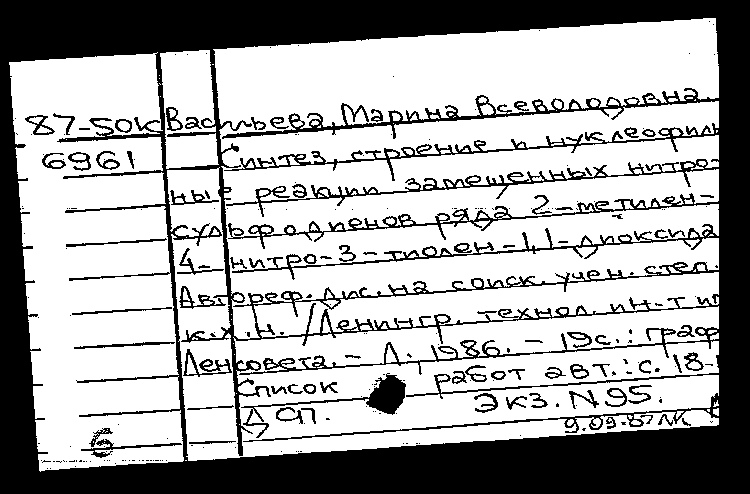 87-50к Васильева, Марина Всеволодовна.
6961 Синтез, строение и нуклеофиль
ные реакции замещенных нитро-
сульфодиенов ряда 2-метилен-
4-нитро-3-тиолен-1,1-диоксида
Автореф. дис. на соиск. учен. степ.
к.х.н. /Ленингр. технол. ин-т и
Ленсовета. - Л., 1986. - 19с.: граф
Список работ авт.: с. 18-
ДСП. Экз. N 95.
6 9.09.87